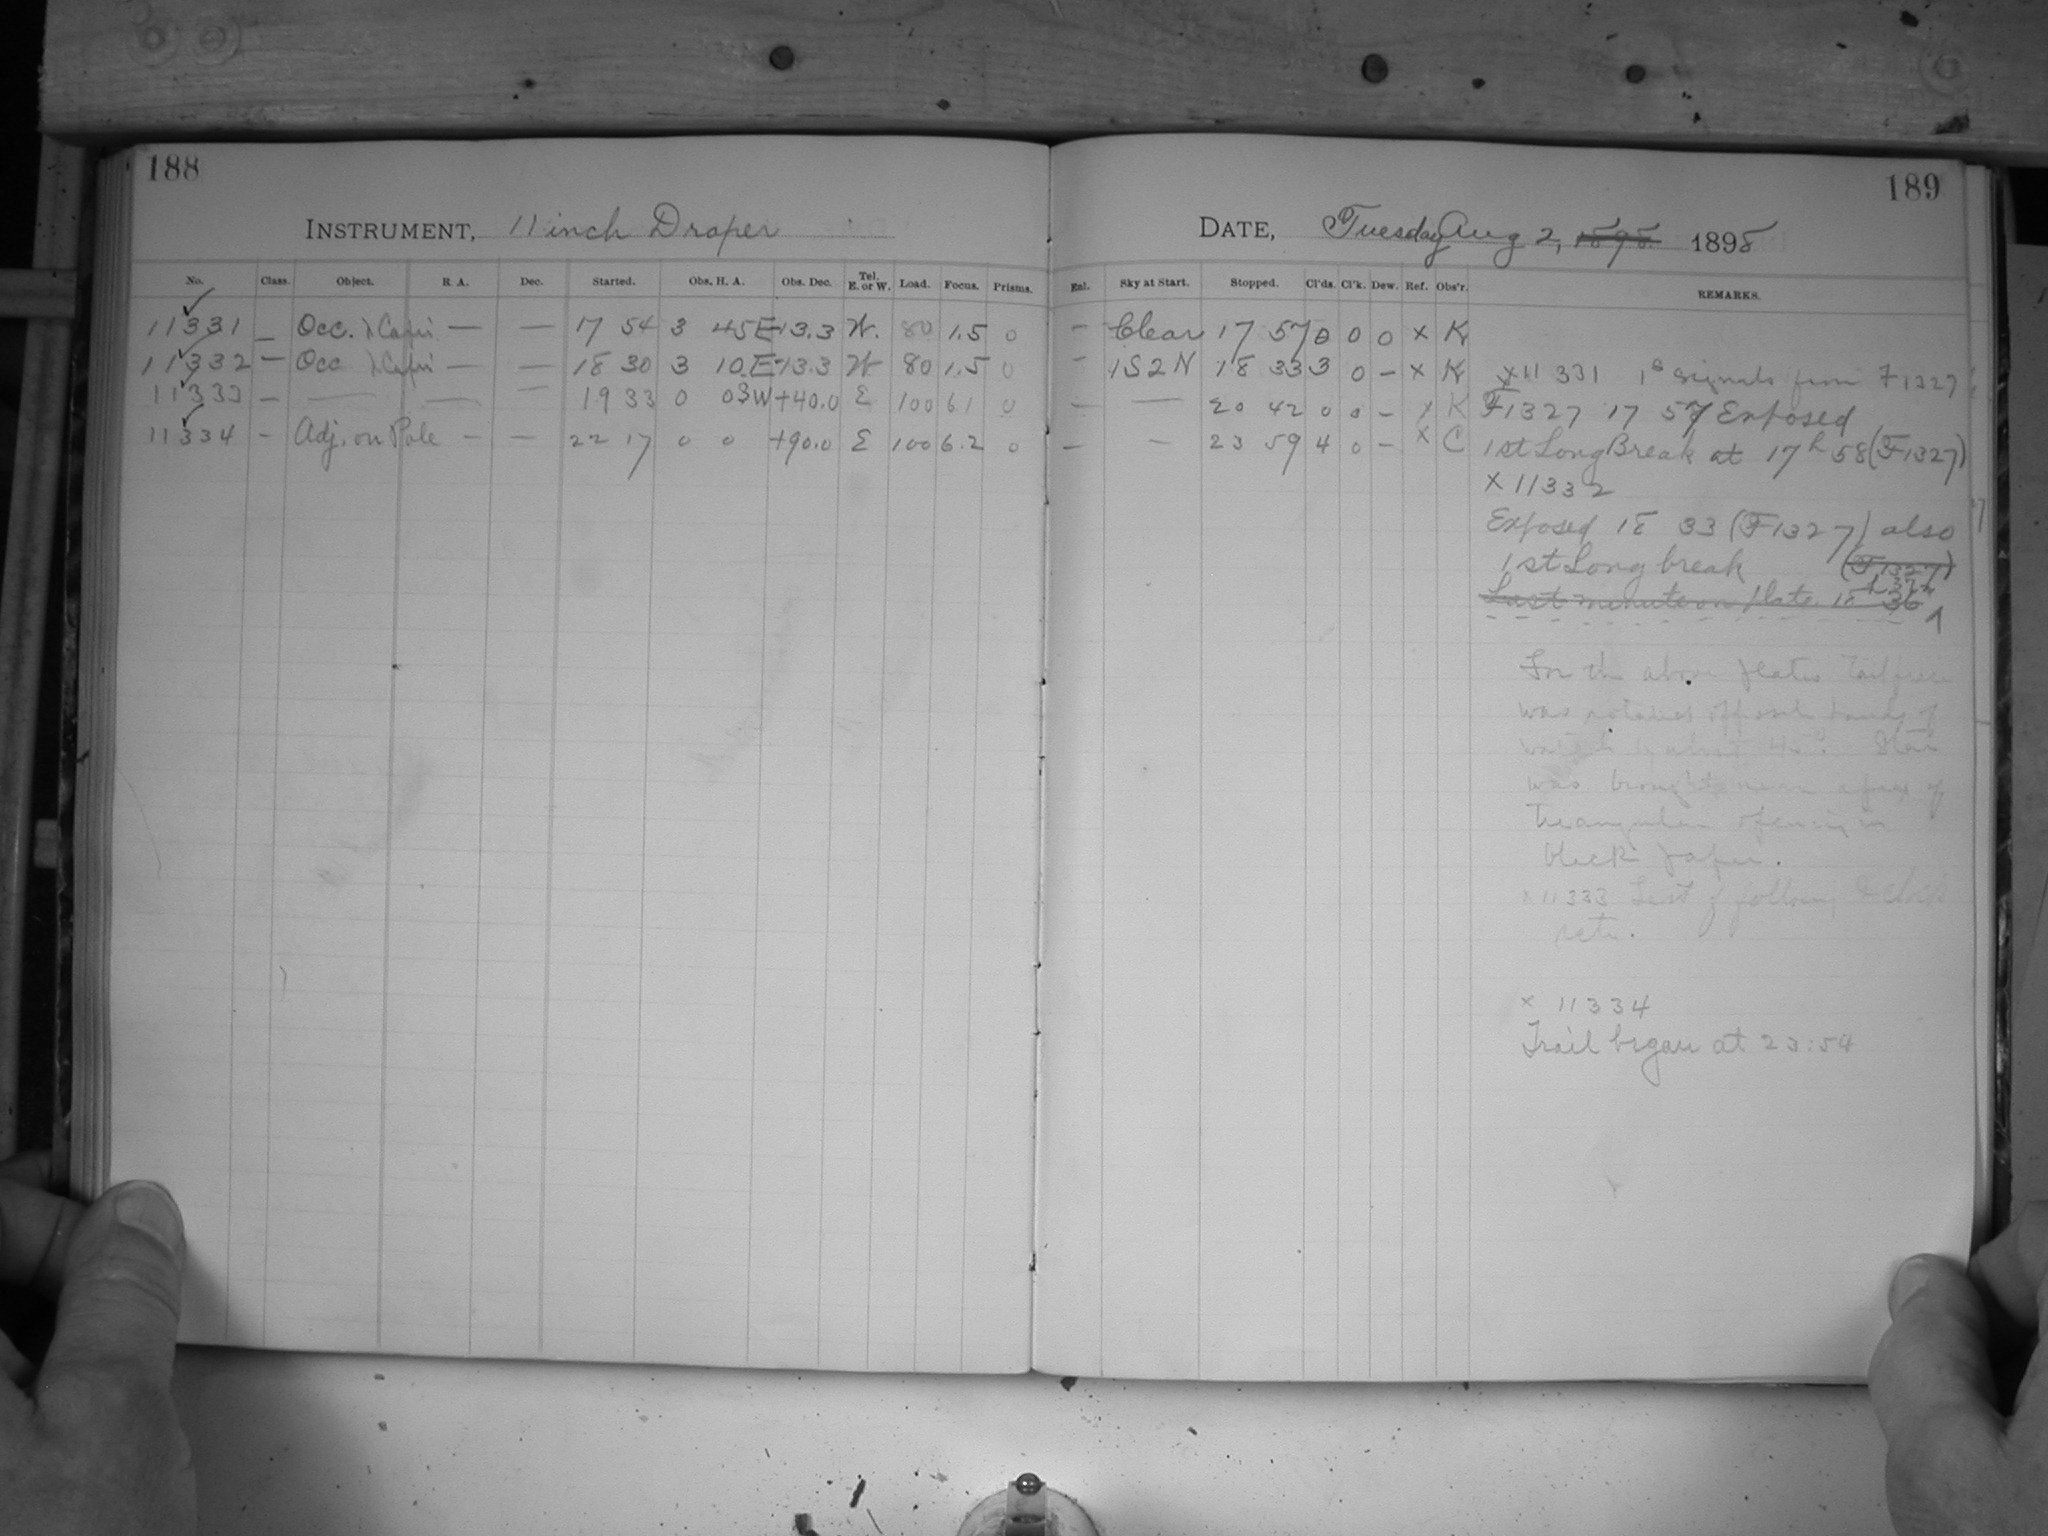 188
INSTRUMENT, 11 inch Draper
No. Class. Object. R. A. Dec. Started. Obs. H. A. Obs. Dec. Tel. E. or W. Load. Focus. Prisms.
11331 — Occ. λ Capri — — 17 54 3 45E -13.3 W. 80 1.5 0
11332 — Occ λ Capri — — 18 30 3 10E -13.3 W 80 1.5 0
11333 — — — — 19 33 0 03W +40.0 E 100 6.1 0
11334 - Adj. on Pole - - 22 17 0 0 +90.0 E 100 6.2 0
189
DATE, Tuesday Aug 2, 1898 1898
Enl. Sky at Start. Stopped. Cl'ds. Cl'k. Dew. Ref. Obs'r. REMARKS.
- Clear 17 57 0 0 0 x K
- 1S2N 18 33 3 0 - x K
— — 20 42 0 0 - x K
— - 23 59 4 0 - x C
x11 331 1s signals from F1327
F1327 17 57 Exposed
1st Long Break at 17h 58 (F1327)
x 11332
Exposed 18 33 (F1327) also
1st Long break (F1327)
Last minute on plate 18h 36
For the above plates Tailpiece
was rotated opposite hands of
watch by about 45°. Star
was brought near apex of
Triangular opening in
black paper.
x 11333 Test of following & clock
rate.
x 11334
Trail began at 23:54